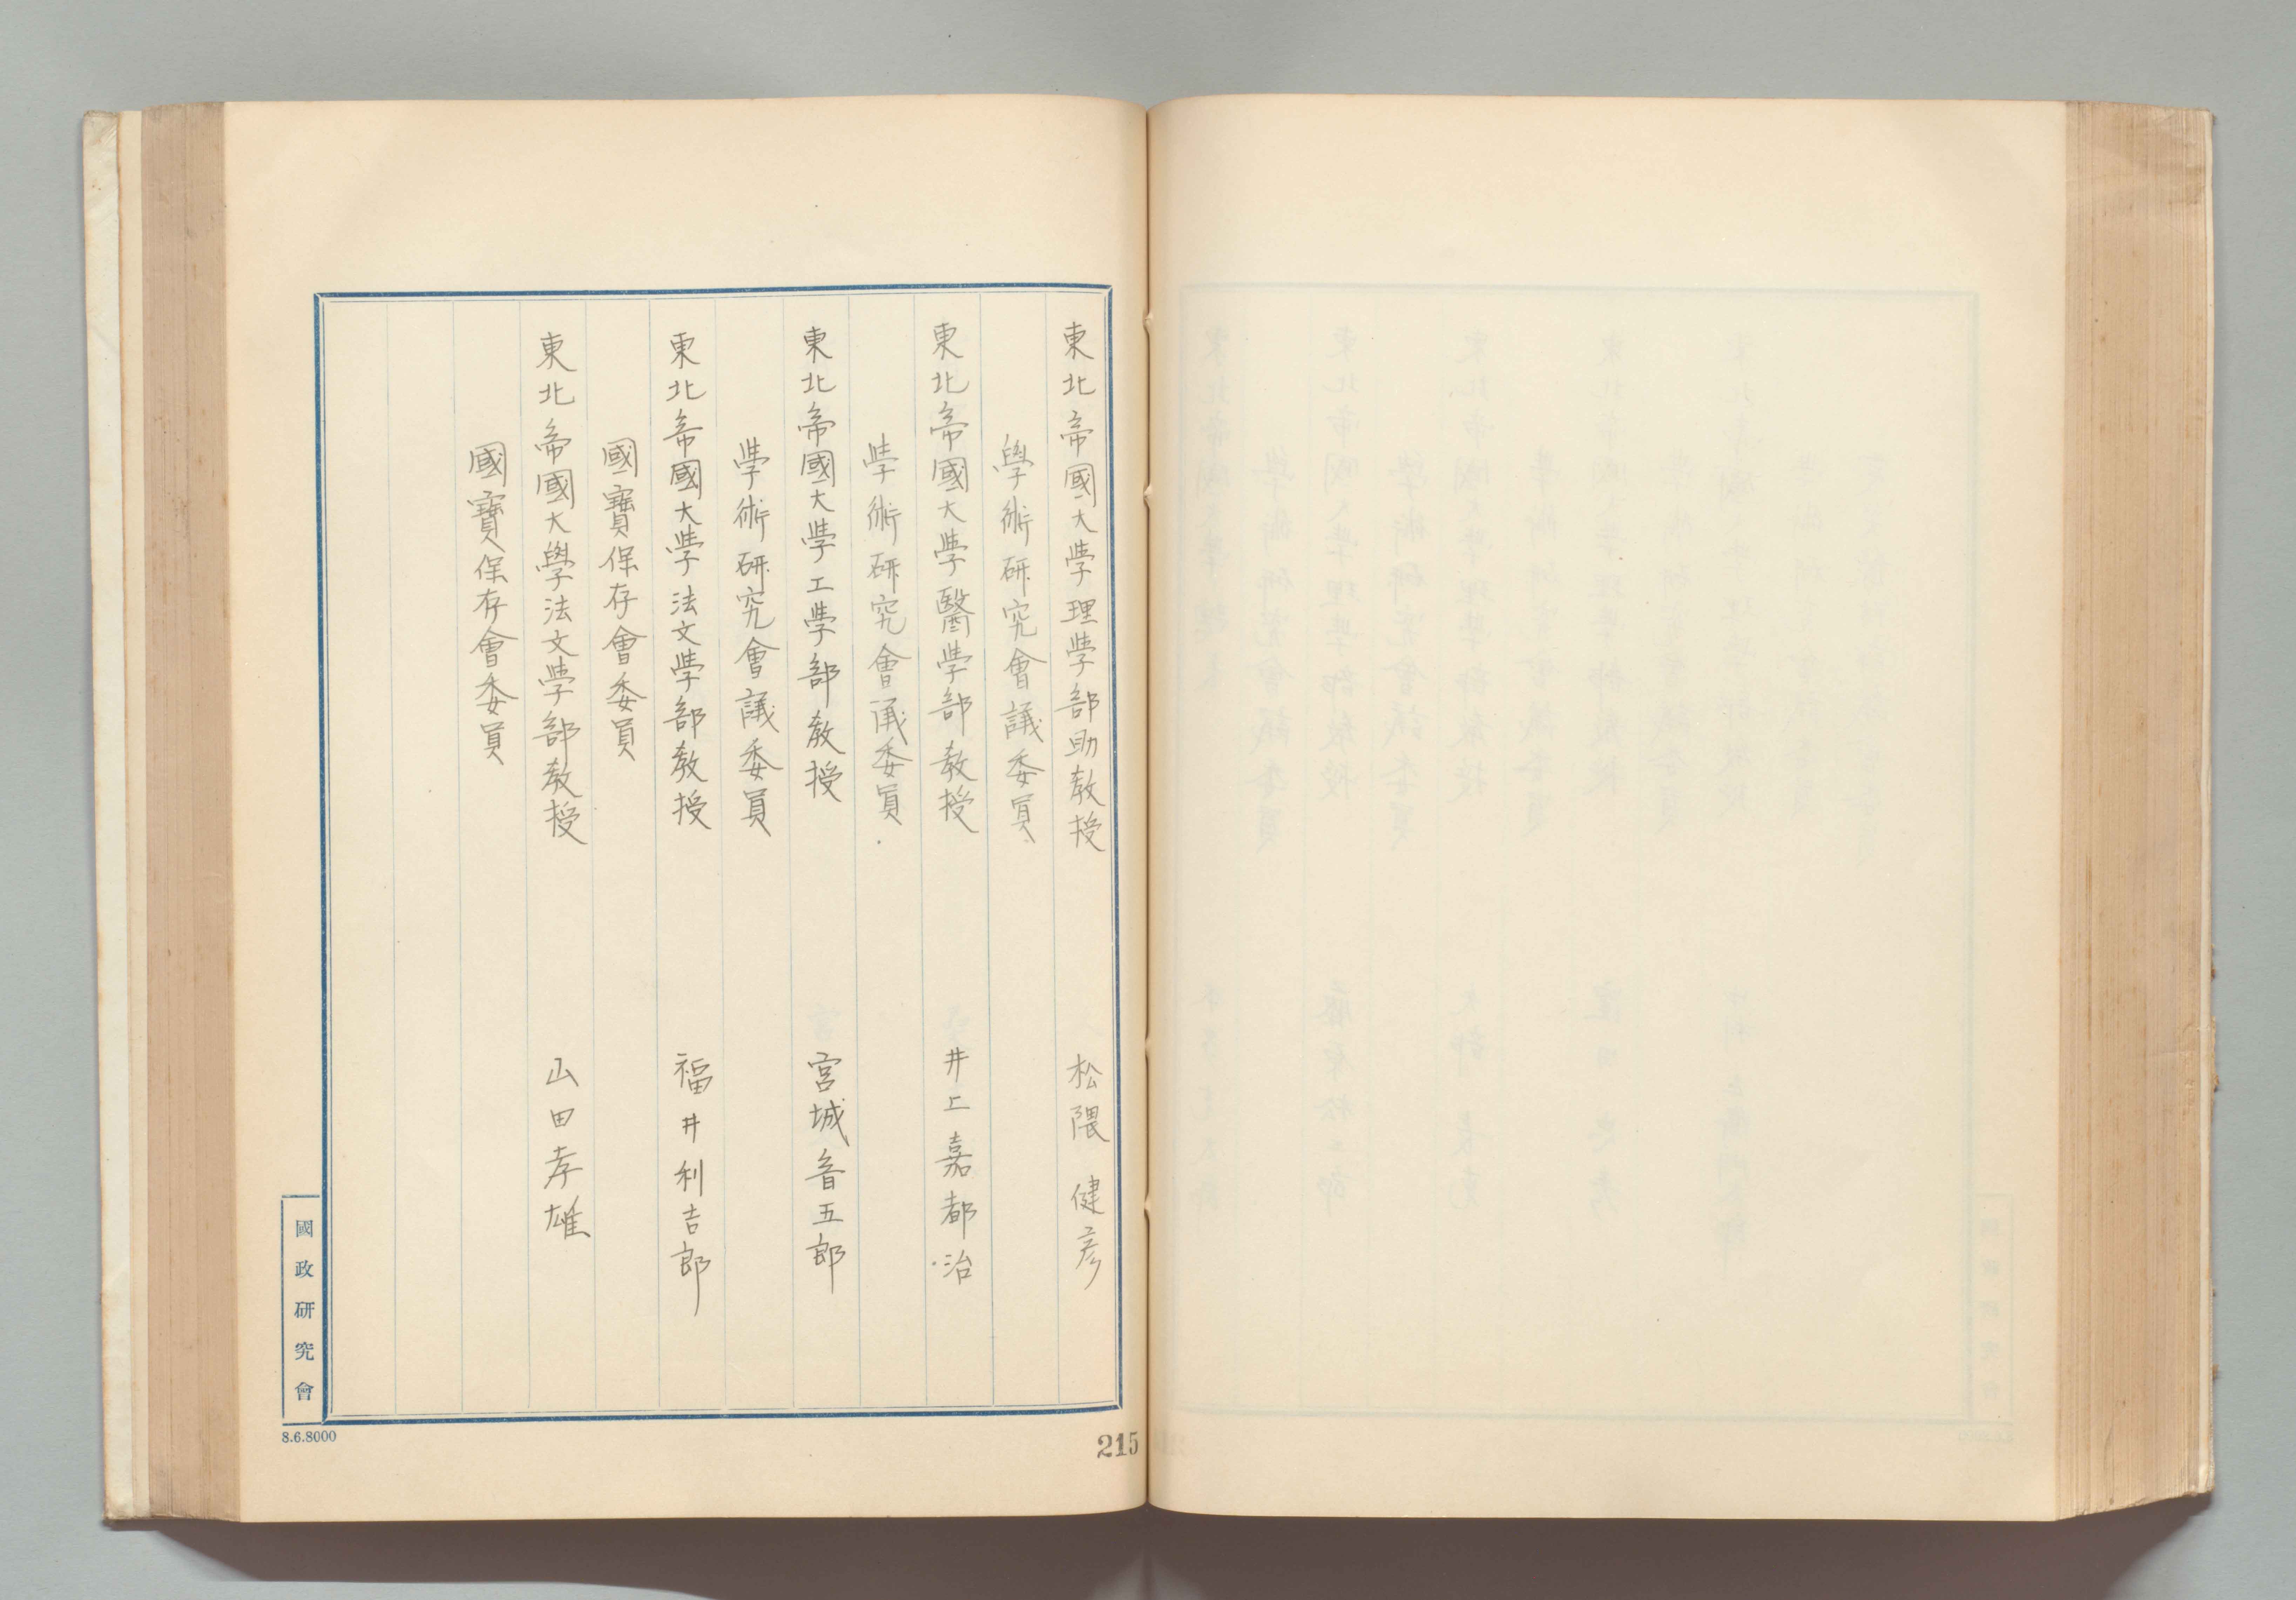 東北帝國大學理學部助敎授　松隈健彦
學術硏究會議委員
東北帝國大學醫學部敎授　井上嘉都治
學術硏究會議委員
東北帝國大學工學部敎授　宮城音五郎
學術硏究會議委員
東北帝國大學法文學部敎授　福井利吉郎
國寶保存會委員
東北帝國大學法文學部敎授　山田孝雄
國寶保存會委員
國政硏究會
8.6.8000
215